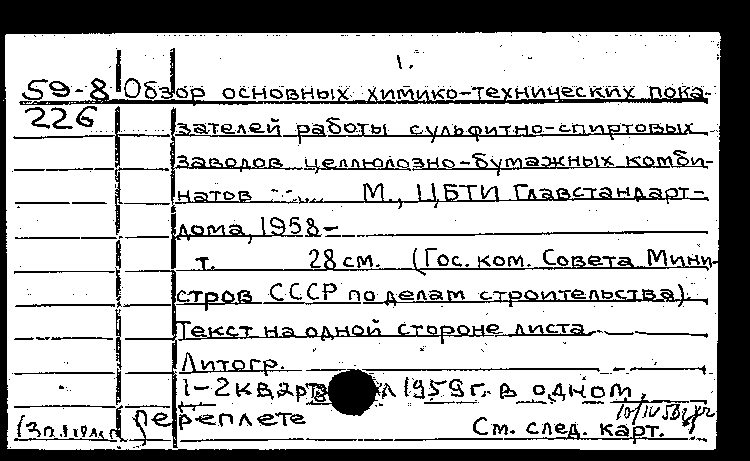 1.
59-8 Обзор основных химико-технических пока-
226 зателей работы сульфитно-спиртовых
заводов целлюлозно-бумажных комби-
натов ..... М., ЦБТИ Главстандарт-
дома, 1958-
т. 28 см. (Гос. ком. Совета Мини-
стров СССР по делам строительства).
Текст на одной стороне листа.
Литогр.
1-2 1959 г. в одном
переплете
См. след. карт.